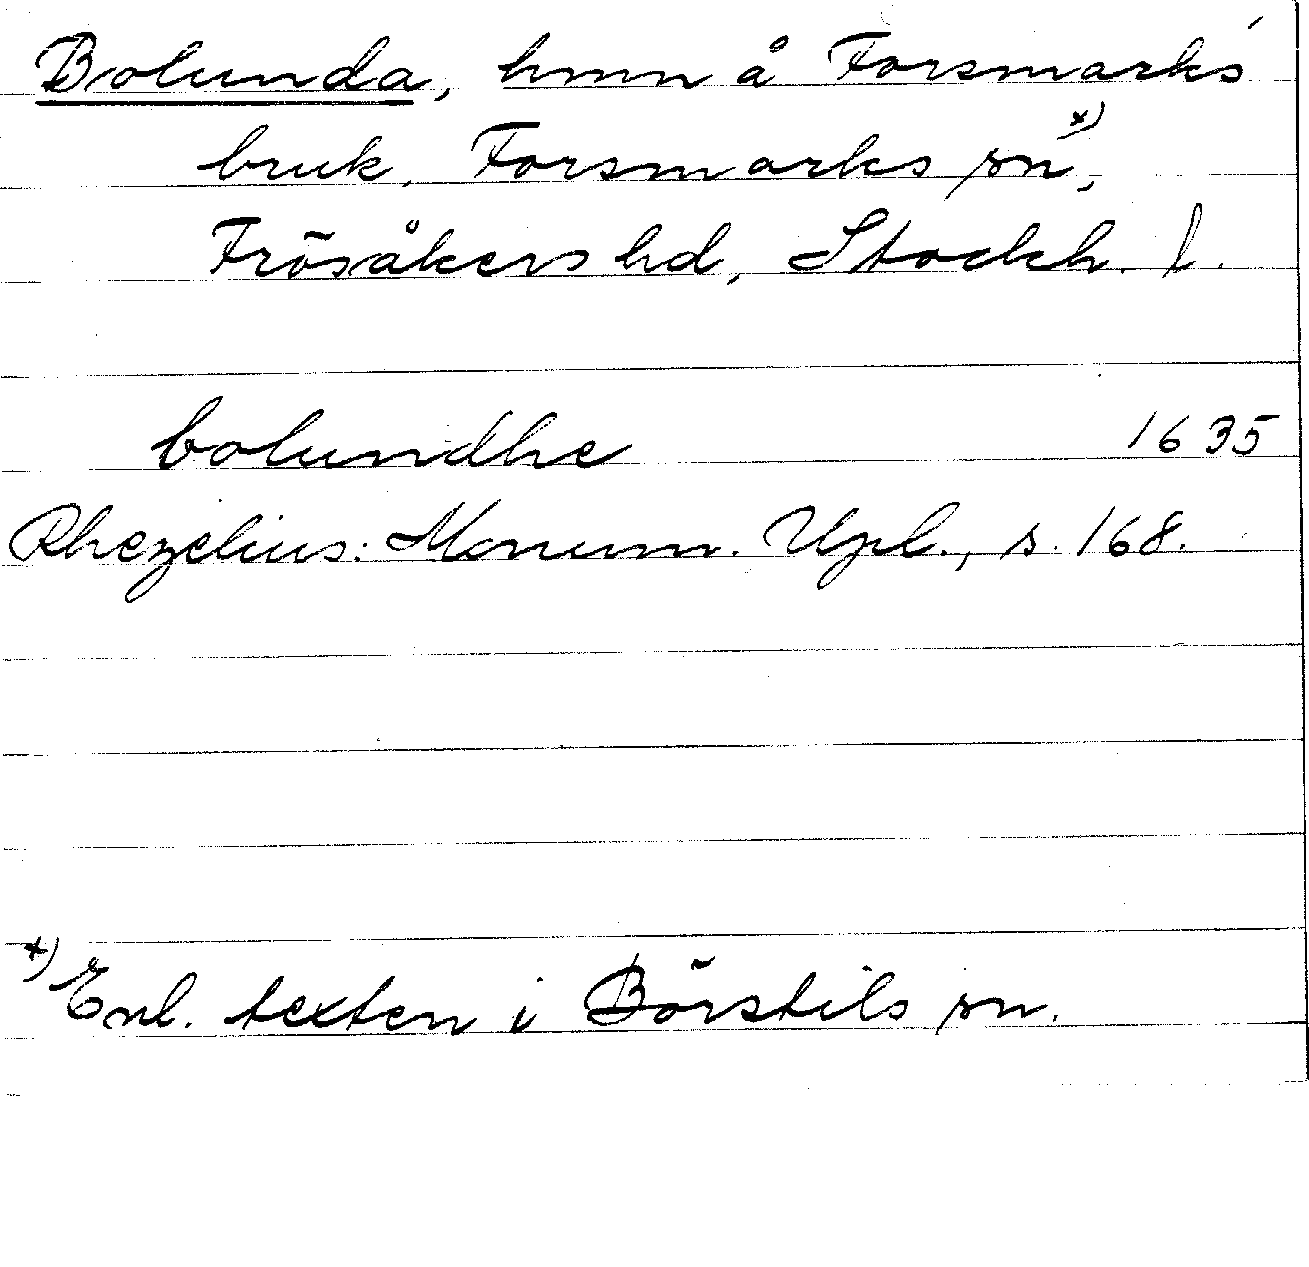 Bolunda, hmn å Forsmarks
bruk, Forsmarks sn*),
Frösåkers hd, Stockh. l.
bolundhe 1635
Rhezelius: Monum. Upl., s. 168.
*) Enl. texten i Börstils sn.